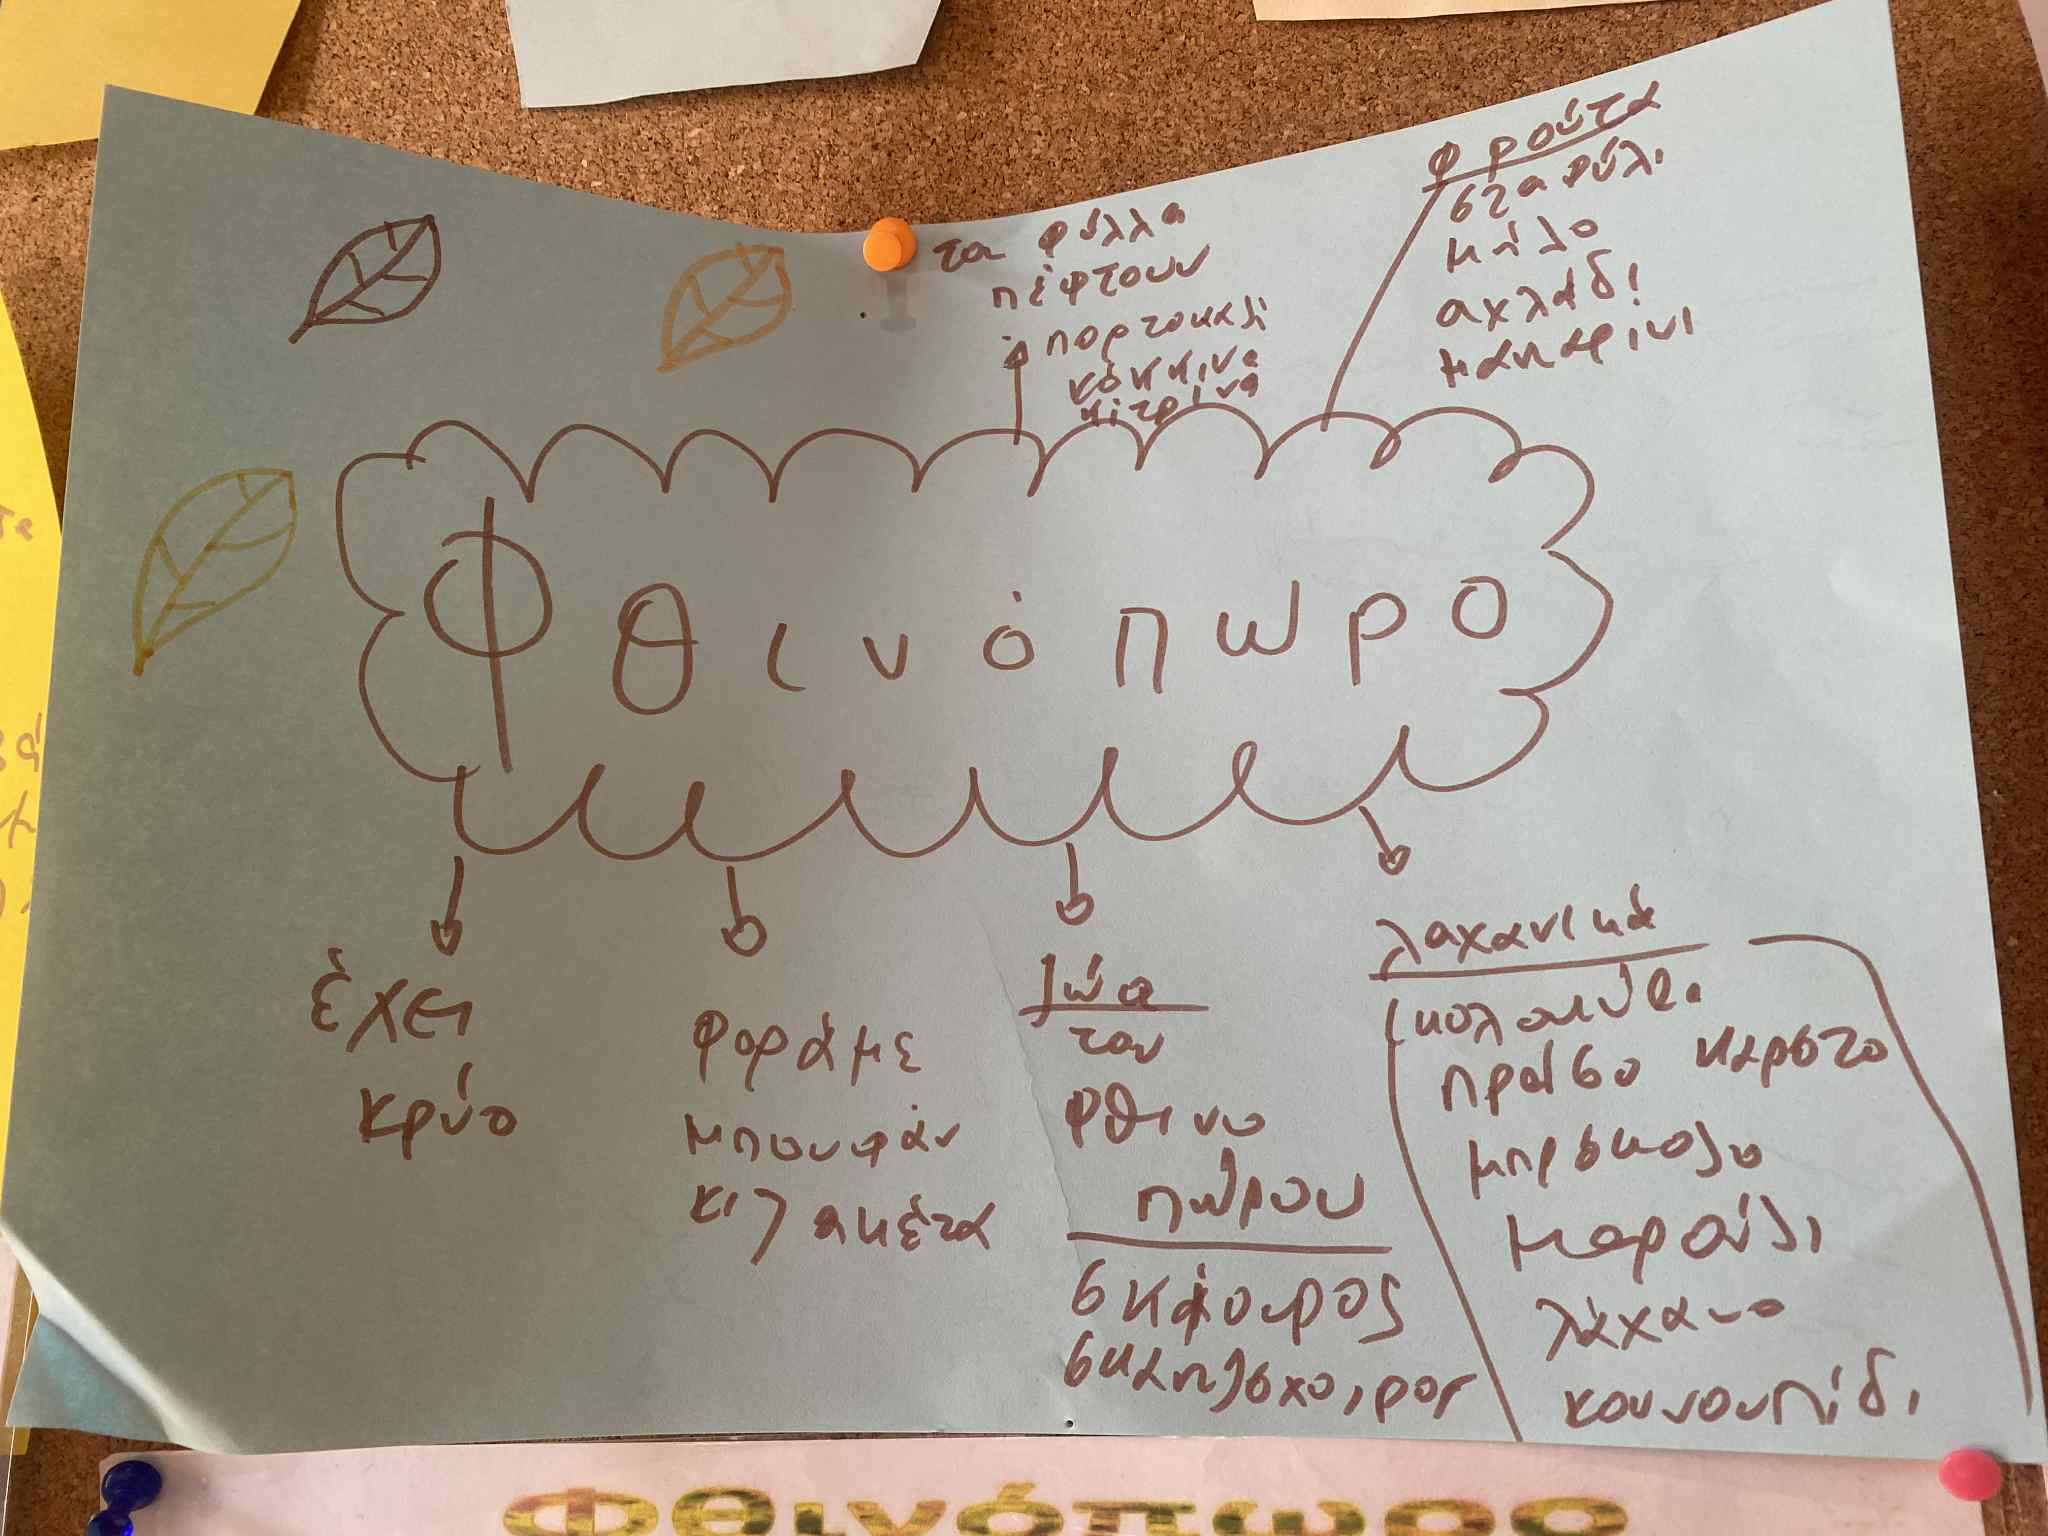 τα φύλλα
πέφτουν
πορτοκαλί
κόκκινα
κίτρινα
φρούτα
σταφύλι
μήλο
αχλάδι
μανταρίνι
Φθινόπωρο
έχει
κρύο
φοράμε
μπουφάν
κι ζακέτα
ζώα
του
φθινο
πώρου
σκίουρος
σκαντζόχοιρος
λαχανικά
κολοκύθι
πράσο καρότο
μπρόκολο
μαρούλι
λάχανο
κουνουπίδι
Φθινόπωρο